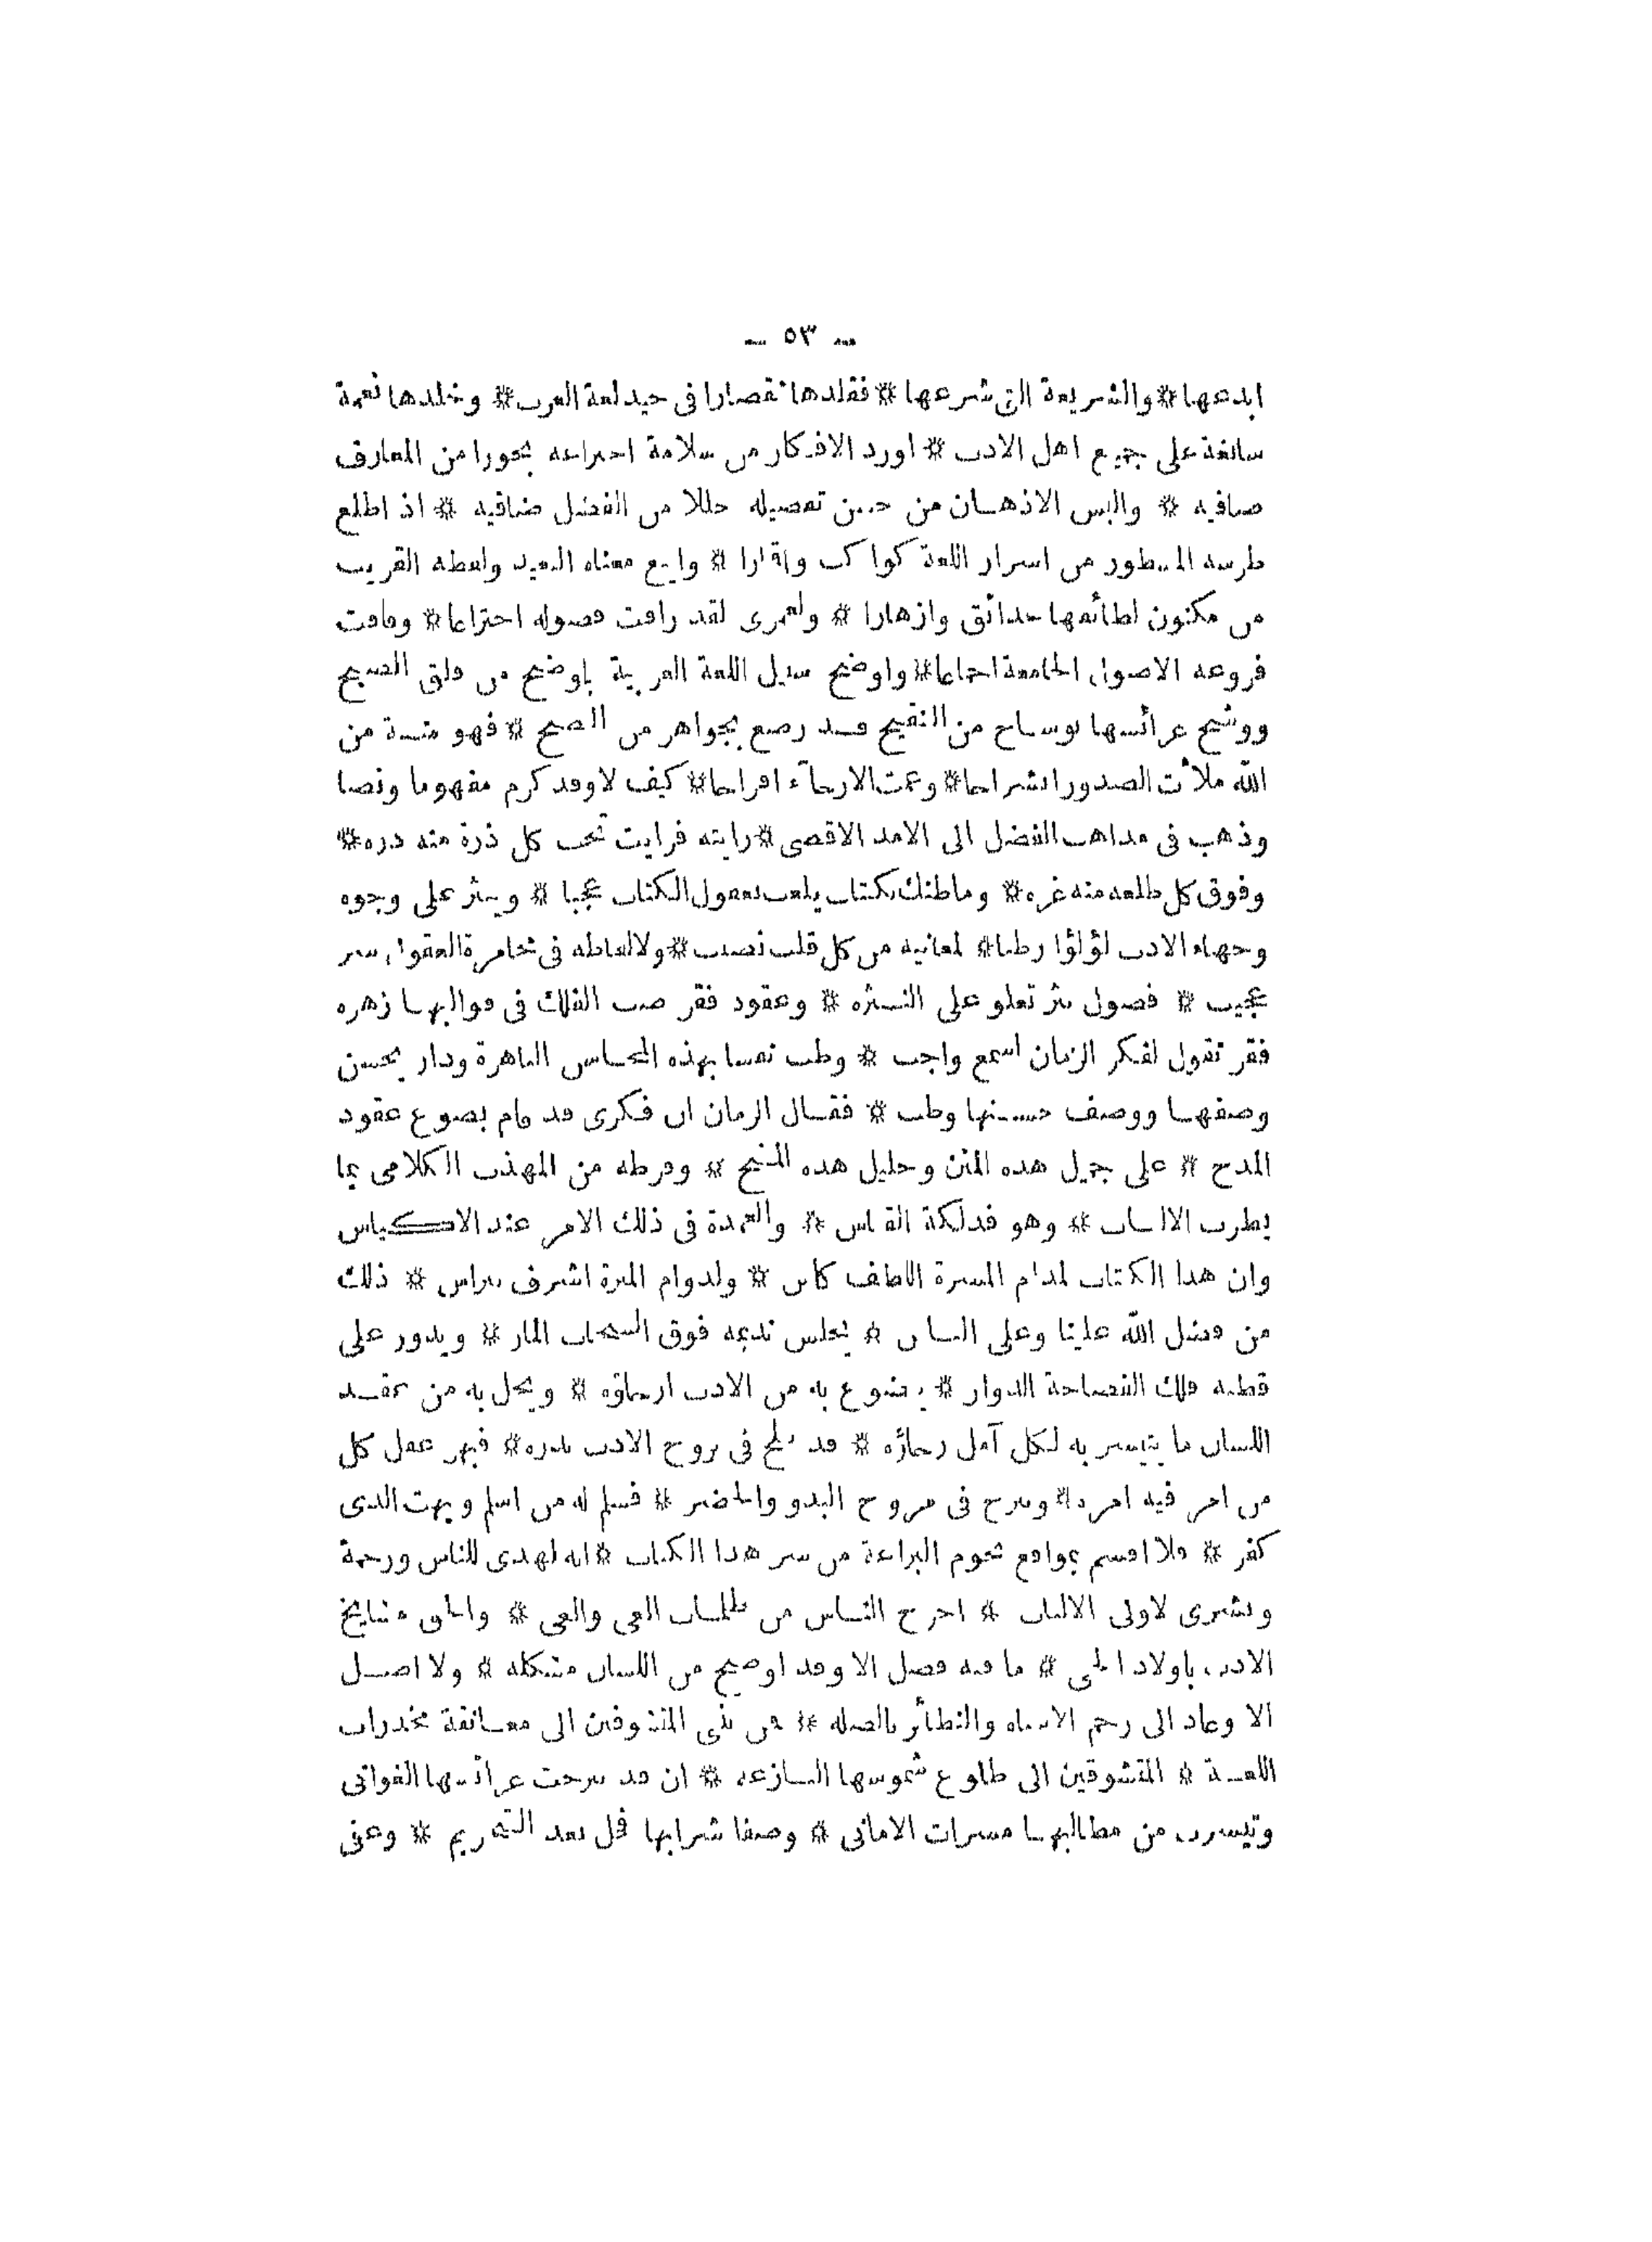 ـ ٥٣ ـ
ابدعها * والشريعة التى شرعها * فقلدها تقصارا فى جيد لغة العرب * وخلدها نعمة
سابغة على جميع اهل الادب * اورد الافكار من سلامة اختراعه بحورا من المعارف
صافيه * والبس الاذهان من حسن تفصيله حللا من الفضل ضافيه * اذ اطلع
طرسه المسطور من اسرار اللغة كواكب واقمارا * واينع معناه البعيد ولفظه القريب
من مكنون لطائفها حدائق وازهارا * ولعمرى لقد راقت فصوله اختراعا * وفاقت
فروعه الاصول الجامعة اجماعا * واوضح سبيل اللغة العربية باوضح من فلق الصبح
ووشح عرائسها بوشاح من التنقيح قد رصع بجواهر من الصح * فهو منة من
الله ملأت الصدور انشراحا * وعمت الارجآء افراحا * كيف لا وقد كرم مفهوما ونصا
وذهب فى مذاهب الفضل الى الامد الاقصى * رايته فرايت تحت كل ذرة منه دره *
وفوق كل طلعه منه غره * وما ظنك بكتاب يلعب بعقول الكتاب عجبا * وينثر على وجوه
وجهاء الادب لؤلؤا رطبا * لمعانيه من كل قلب نصيب * ولالفاظه فى مخامرة العقول سر
عجيب * فصول نثر تعلو على النثره * وعقود فقر صب الفلك فى قوالبها زهره
فقر تقول لفكر الزمان اسمع واجب * وطب نفسا بهذه المحاسن الباهرة ودار بحسن
وصفها ووصف حسنها وطب * فقال الزمان ان فكرى قد قام بصوغ عقود
المدح * على جميل هذه المنن وجليل هذه المنح * وقرطه من المهذب الكلامى بما
يطرب الالباب * وهو فذلكة القياس * والعمدة فى ذلك الامر عند الاكياس
وان هذا الكتاب لمدام المسرة الالطف كاس * ولدوام المبرة اشرف نبراس * ذلك
من فضل الله علينا وعلى الناس * يجلس نديمه فوق السحاب المار * ويدور على
قطبه فلك الفصاحة الدوار * يتضوع به من الادب ارجاؤه * ويحل به من عقد
اللسان ما يتيسر به لكل آمل رجاؤه * قد بلج فى بروج الادب بدره * فبهر عقل كل
من امر فيه امره * وسرح فى مروج البدو والحضر * فسلم له من اسلم وبهت الذى
كفر * فلا اقسم بمواقع نجوم البراعة من سر هذا الكتاب * انه لهدى للناس ورحمة
وبشرى لاولى الالباب * اخرج الناس من ظلمات الغى والعى * والحق مشايخ
الادب باولاد الحى * ما فيه فصل الا وقد اوضح من اللسان مشكله * ولا اصل
الا وعاد الى رحم الاشباه والنظائر بالصله * من بنى المتشوفين الى معانقة مخدرات
اللغة * المتشوقين الى طلوع شموسها البازغه * ان قد سرحت عرائسها الغوانى
وتيسرت من مطالبها مسرات الامانى * وصفا شرابها فحل بعد التحريم * وعنى